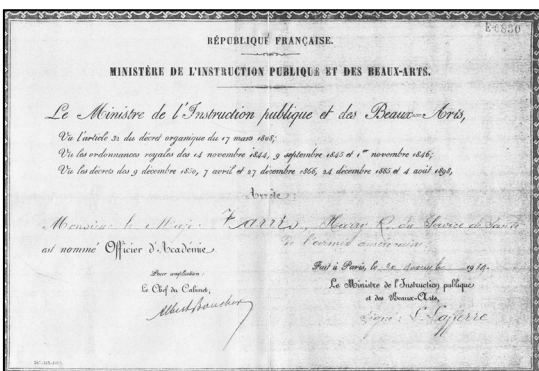 E-6830
RÉPUBLIQUE FRANÇAISE.
MINISTÈRE DE L'INSTRUCTION PUBLIQUE ET DES BEAUX-ARTS.
Le Ministre de l'Instruction publique et des Beaux-Arts,
Vu l'article 32 du décret organique du 17 mars 1808;
Vu les ordonnances royales des 14 novembre 1844, 9 septembre 1845 et 1er novembre 1846;
Vu les décrets des 9 décembre 1850, 7 avril et 27 décembre 1866, 24 décembre 1885 et 4 août 1898,
Arrête:
Monsieur le Major Harris, Henry R. du Service de Santé
de l'armée américaine
est nommé Officier d'Académie.
Pour ampliation:
Le Chef du Cabinet,
Fait à Paris, le 20 novembre 1919.
Le Ministre de l'Instruction publique
et des Beaux-Arts,
Signé: L. Lafferre